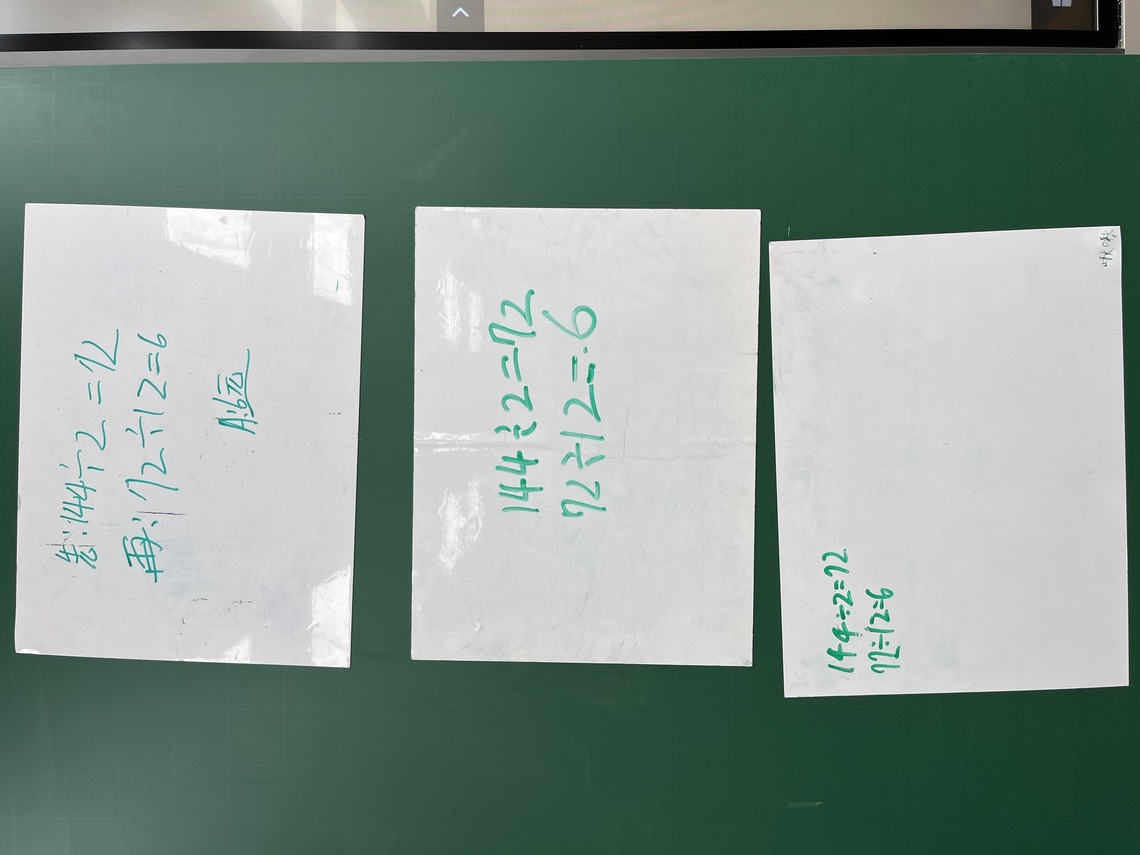 先:144÷2=72
再:72÷12=6
A:6元
144÷2=72
72÷12=6
144÷2=72
72÷12=6